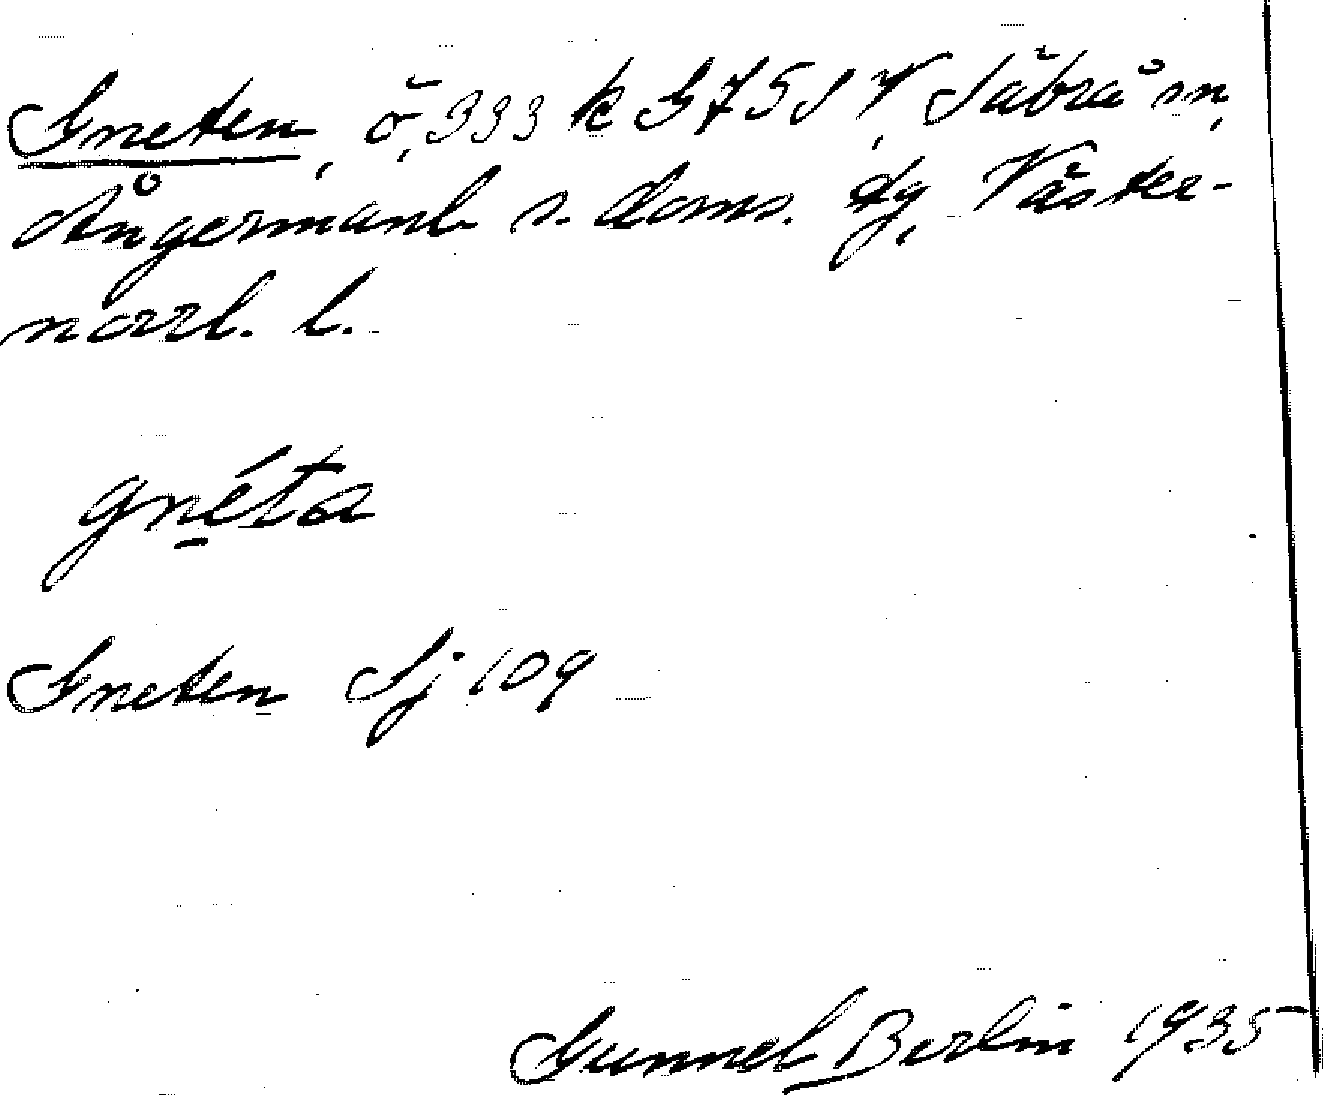 Gneten, ö, 333 k G 7 5 S V, Säbrå sn,
Ångermanl s. doms. dg, Väster-
norrl. l.
gnéta
Gneten Sj 109
Gunnel Berlin 1935